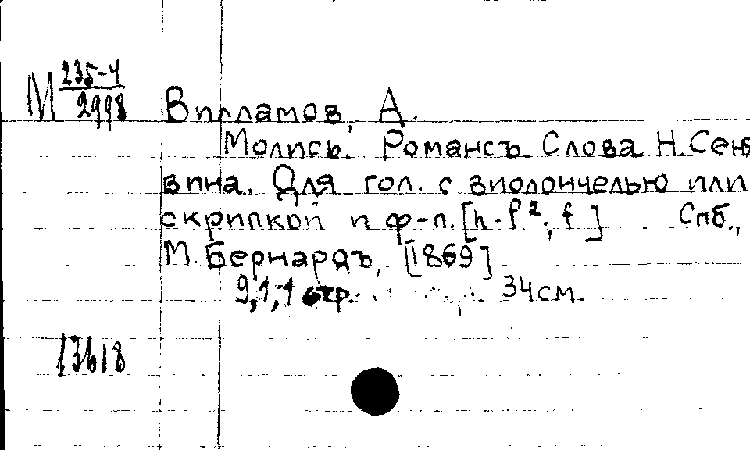 М 235-4
2998
Вилламов, А.
Молись. Романсъ. Слова Н. Сеня
вина. Для гол. с виолончелью или
скрипкой и ф-п. [h-f²; f] Спб.,
М. Бернардъ, [1869]
9,1,1 стр. 34 см.
13618